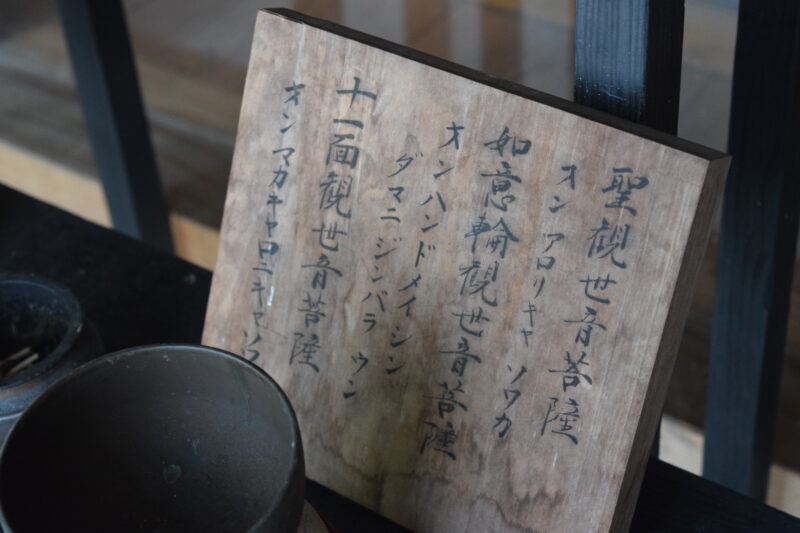 聖観世音菩薩
オン アロリキャ ソワカ
如意輪観世音菩薩
オン ハンドメイ シン
ダマニ ジンバラ ウン
十一面観世音菩薩
オン マカ キャロニキャ ソワ